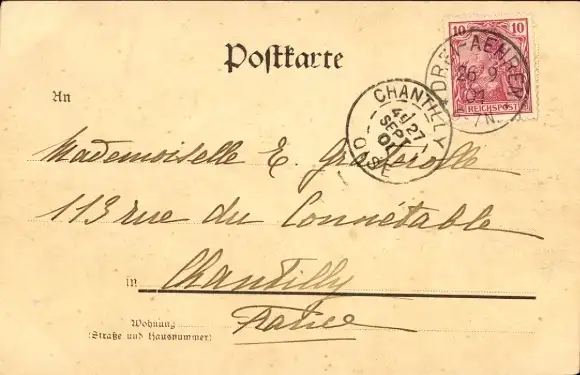 Postkarte
10 10
REICHSPOST
DREI-AEHREN
26 9
01
7N.
CHANTILLY
4E 27
SEPT
01
OISE
An
Mademoiselle E.
113 rue du Connétable
in Chantilly
France
Wohnung
(Straße und Hausnummer)